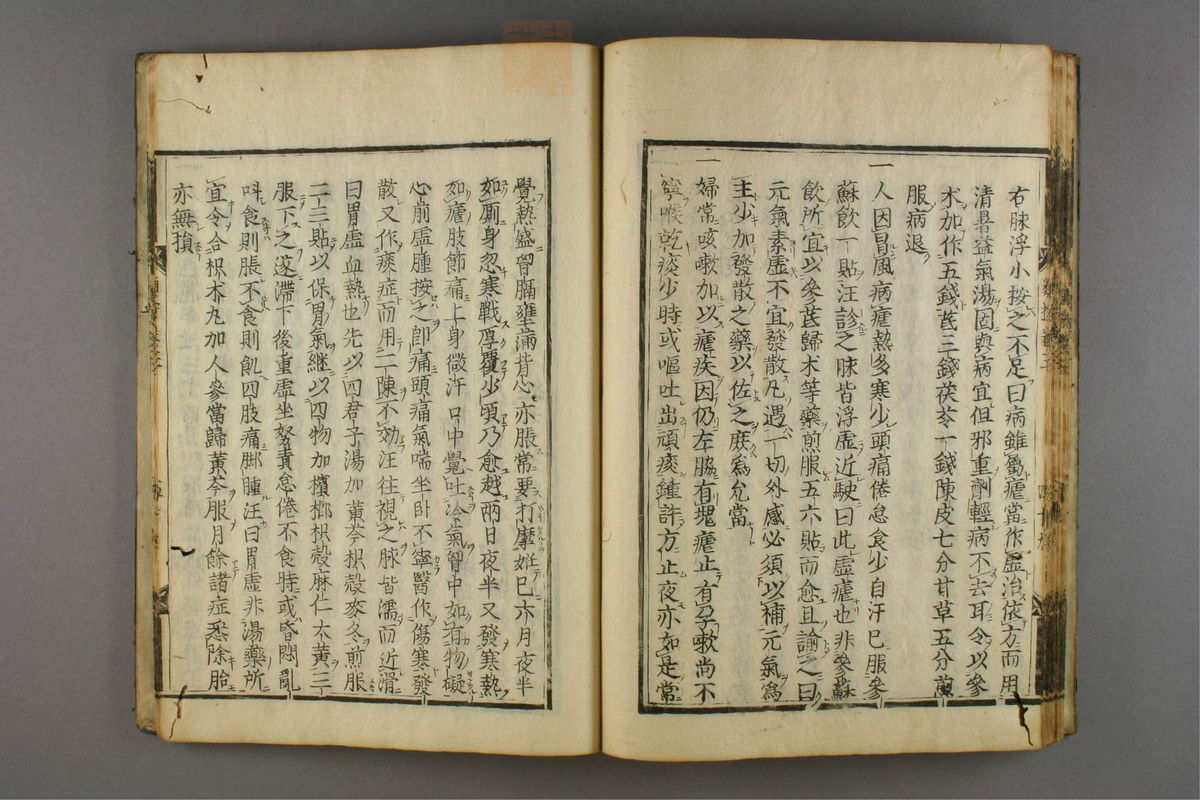 右脉浮小按之不足曰病雖屬瘧當作虛治依方而用
清暑益氣湯固與病宜但邪重劑輕病不去耳令以參
术加作五錢芪三錢茯苓一錢陳皮七分甘草五分煎
服病退
一人因冒風病瘧熱多寒少頭痛倦怠食少自汗已服參
蘇飲一貼汪診之脉皆浮虛近駛曰此虛瘧也非參蘇
飲所宜以參芪歸术等藥煎服五六貼而愈且諭之曰
元氣素虛不宜發散凡遇一切外感必須以補元氣爲
主少加發散之藥以佐之庶爲允當
一婦常咳嗽加以瘧疾因仍左脇有塊瘧止有孕嗽尚不
寧喉乾痰少時或嘔吐出頑痰鍾許方止夜亦如是常
覺熱盛胷膈壅滿背心亦脹常要打摩姙巳六月夜半
如厠身忽寒戰厚覆少頃乃愈越兩日夜半又發寒熱
如瘧肢節痛上身微汗口中覺吐冷氣胷中如有物礙
心前虛腫按之卽痛頭痛氣喘坐卧不寧醫作傷寒發
散又作痰症而用二陳不効汪往視之脉皆濡而近滑
曰胃虛血熱也先以四君子湯加黃芩枳殼麥冬煎服
二三貼以保胃氣繼以四物加檳榔枳殼麻仁大黃三
服下之遂滯下後重虛坐努責怠倦不食時或昏悶亂
呌食則脹不食則飢四肢痛脚腫汪曰胃虛非湯藥所
宜令合枳术丸加人參當歸黃芩服月餘諸症悉除胎
亦無損